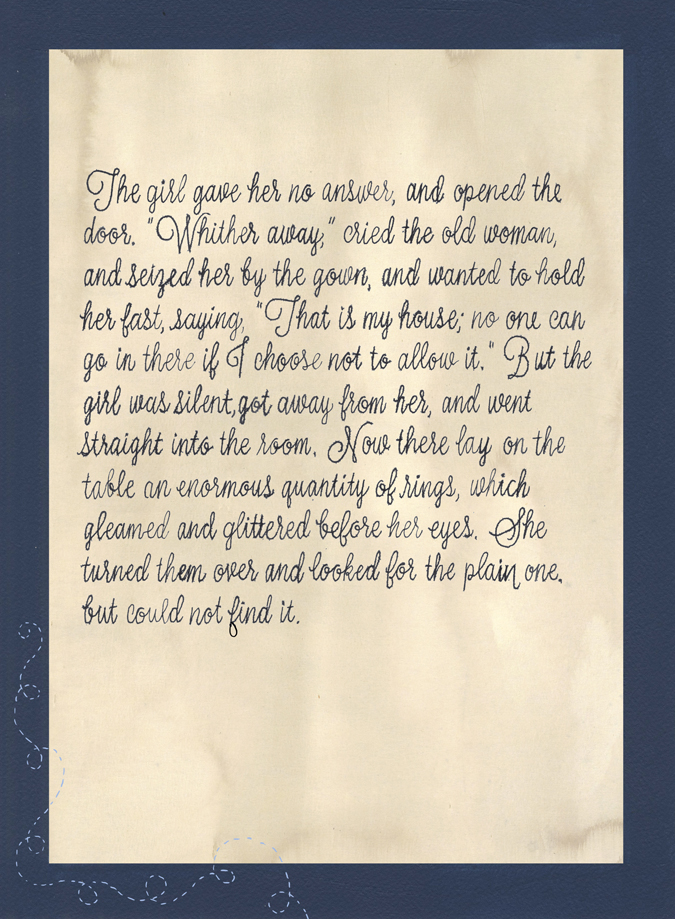 The girl gave her no answer, and opened the
door. "Whither away," cried the old woman,
and seized her by the gown, and wanted to hold
her fast, saying, "That is my house; no one can
go in there if I choose not to allow it." But the
girl was silent,got away from her, and went
straight into the room. Now there lay on the
table an enormous quantity of rings, which
gleamed and glittered before her eyes. She
turned them over and looked for the plain one,
but could not find it.